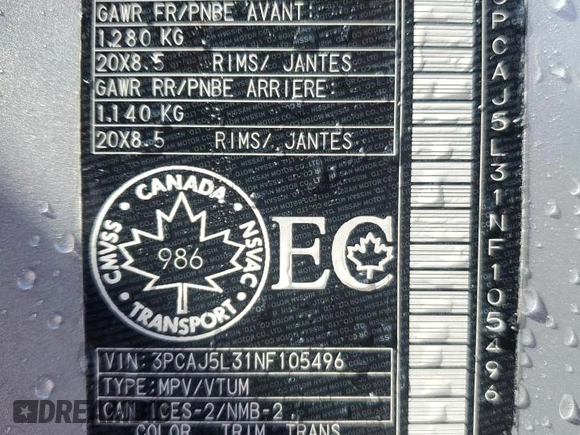 GAWR FR/PNBE AVANT:
1,280 KG
20X8.5 RIMS/ JANTES
GAWR RR/PNBE ARRIERE:
1,140 KG
20X8.5 RIMS/ JANTES
CANADA
CMVSS
NSVAC
986
TRANSPORT
EC
VIN: 3PCAJ5L31NF105496
TYPE:MPV/VTUM
CAN ICES-2/NMB-2
COLOR TRIM TRANS
3PCAJ5L31NF105496
NISSAN MOTOR CO LTD